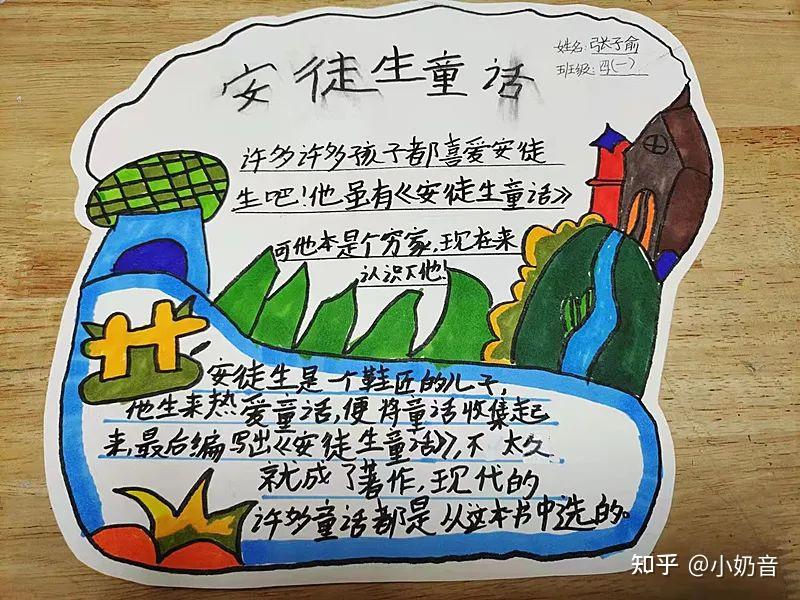 安徒生童话
姓名:张子俞
班级:四(一)
许多许多孩子都喜爱安徒
生吧!他虽有《安徒生童话》
可他本是个穷家,现在来
认识下他!
安徒生是一个鞋匠的儿子,
他生来热爱童话,便将童话收集起
来,最后编写出《安徒生童话》,不太久
就成了著作,现代的
许多童话都是从这本书中选的。
知乎 @小奶音